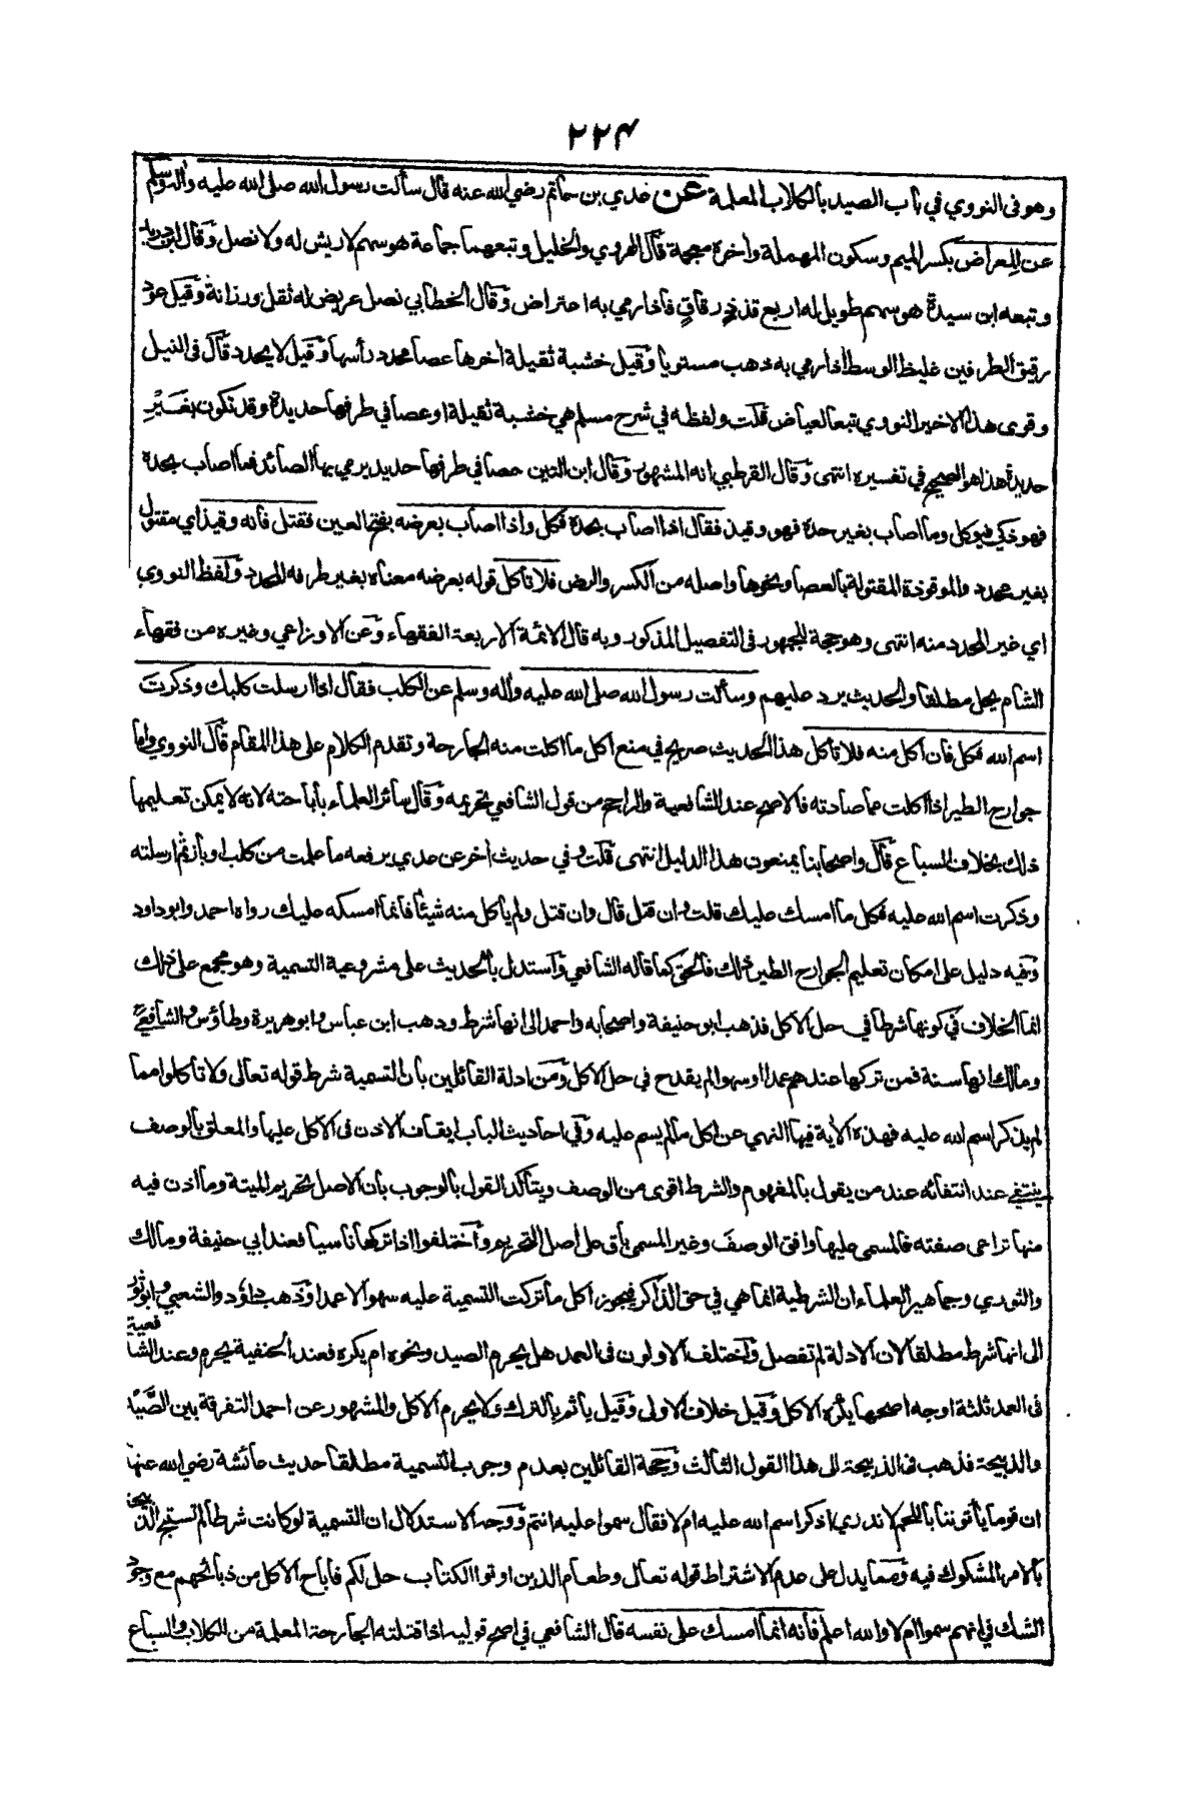 ٢٢٤
وهو في النووي في باب الصيد بالكلاب المعلمة عن عدي بن حاتم رضي الله عنه قال سألت رسول الله صلى الله عليه واله وسلم
عن المعراض بكسر الميم وسكون المهملة وآخره معجمة قال الهروي والخليل وتبعهما جماعة هو سهم لا ريش له ولا نصل وقال ابن دريد
وتبعه ابن سيدة هو سهم طويل له اربع قذذ رقاق فاذا رمي به اعتراض وقال الخطابي نصل عريض له ثقل ورزانة وقيل عود
رقيق الطرفين غليظ الوسط اذا رمي به ذهب مستويا وقيل خشبة ثقيلة آخرها عصا محدد رأسها وقيل لا يحدد قال في النيل
وقوى هذا الاخير النووي تبعا لعياض قلت ولفظه في شرح مسلم هي خشبة ثقيلة او عصا في طرفها حديدة وقد تكون بغير
حديدة هذا هو الصحيح في تفسيره انتهى وقال القرطبي انه المشهور وقال ابن التين عصا في طرفها حديد يرمي بها الصائد فما اصاب بحده
فهو ذكي فيوكل وما اصاب بغير حده فهو وقيذ فقال اذا اصاب بحده فكل واذا اصاب بعرضه بفتح العين فقتل فانه وقيذ اي مقتول
بغير محدد والموقوذة المقتولة بالعصا ونحوها واصله من الكسر والرض فلا تأكل قوله بعرضه معناه بغير طرفه المحدد ولفظ النووي
اي غير المحدد منه انتهى وهو حجة للجمهور في التفصيل المذكور وبه قال الائمة الاربعة الفقهاء وعن الاوزاعي وغيره من فقهاء
الشام يحل مطلقا والحديث يرد عليهم وسألت رسول الله صلى الله عليه واله وسلم عن الكلب فقال اذا ارسلت كلبك وذكرت
اسم الله فكل فان اكل منه فلا تأكل هذا الحديث صريح في منع اكل ما اكلت منه الجارحة وتقدم الكلام على هذا المقام قال النووي واما
جوارح الطير اذا اكلت مما صادته فالاصح عند الشافعية والراجح من قول الشافعي تحريمه وقال سائر العلماء باباحته لانه لا يمكن تعليمها
ذلك بخلاف السباع قال واصحابنا يمنعون هذا الدليل انتهى قلت وفي حديث اخر عن عدي يرفعه ما علمت من كلب او باز ثم ارسلته
وذكرت اسم الله عليه فكل ما امسك عليك قلت وان قتل قال وان قتل ولم يأكل منه شيئا فانما امسكه عليك رواه احمد وابو داود
وفيه دليل على امكان تعليم الجوارح الطير ذلك فالحق كما قاله الشافعي واستدل بالحديث على مشروعية التسمية وهو مجمع على ذلك
انما الخلاف في كونها شرطا في حل الاكل فذهب ابو حنيفة واصحابه واحمد الى انها شرط وذهب ابن عباس وابو هريرة وطاؤس والشافعي
ومالك انها سنة فمن تركها عندهم عمدا او سهوا لم يقدح في حل الاكل ومن ادلة القائلين بان التسمية شرط قوله تعالى ولا تأكلوا مما
لم يذكر اسم الله عليه فهذه الاية فيها النهي عن اكل ما لم يسم عليه وفي احاديث الباب ايقاف الاذن في الاكل عليها والمعلق بالوصف
ينتفي عند انتفائه عند من يقول بالمفهوم والشرط اقوى من الوصف ويتأكد القول بالوجوب بان الاصل تحريم الميتة وما اذن فيه
منها تراعى صفته فالمسمى عليها وافق الوصف وغير المسمى باق على اصل التحريم واختلفوا اذا تركها ناسيا فعند ابي حنيفة ومالك
والثوري وجماهير العلماء ان الشرطية انما هي في حق الذاكر فيجوز اكل ما تركت التسمية عليه سهوا لا عمدا وذهب داؤد والشعبي وابو ثور
الى انها شرط مطلقا لان الادلة لم تفصل واختلف الاولون في العمد هل يحرم الصيد ونحوه ام يكره فعند الحنفية يحرم وعند الشافعية
في العمد ثلثة اوجه اصحها يكره الاكل وقيل خلاف الاولى وقيل يأثم بالترك ولا يحرم الاكل والمشهور عن احمد التفرقة بين الصيد
والذبيحة فذهب في الذبيحة الى هذا القول الثالث وحجة القائلين بعدم وجوب التسمية مطلقا حديث عائشة رضي الله عنها
ان قوما يأتوننا باللحم لا ندري اذكر اسم الله عليه ام لا فقال سموا عليه انتم ووجه الاستدلال ان التسمية لو كانت شرطا لم تستبح الذبيحة
بالامر المشكوك فيه ومما يدل على عدم الاشتراط قوله تعالى وطعام الذين اوتوا الكتاب حل لكم فاباح الاكل من ذبائحهم مع وجود
الشك في انهم سموا ام لا والله اعلم فانه انما امسك على نفسه قال الشافعي في اصح قوليه اذا قتلته الجارحة المعلمة من الكلاب والسباع